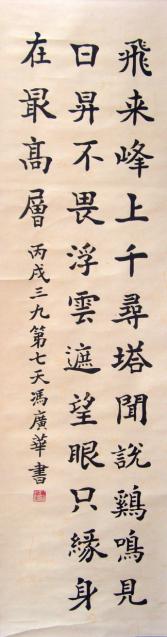 飛来峰上千尋塔聞說鷄鳴見
日昇不畏浮雲遮望眼只緣身
在最高層丙戌三九第七天馮廣華書